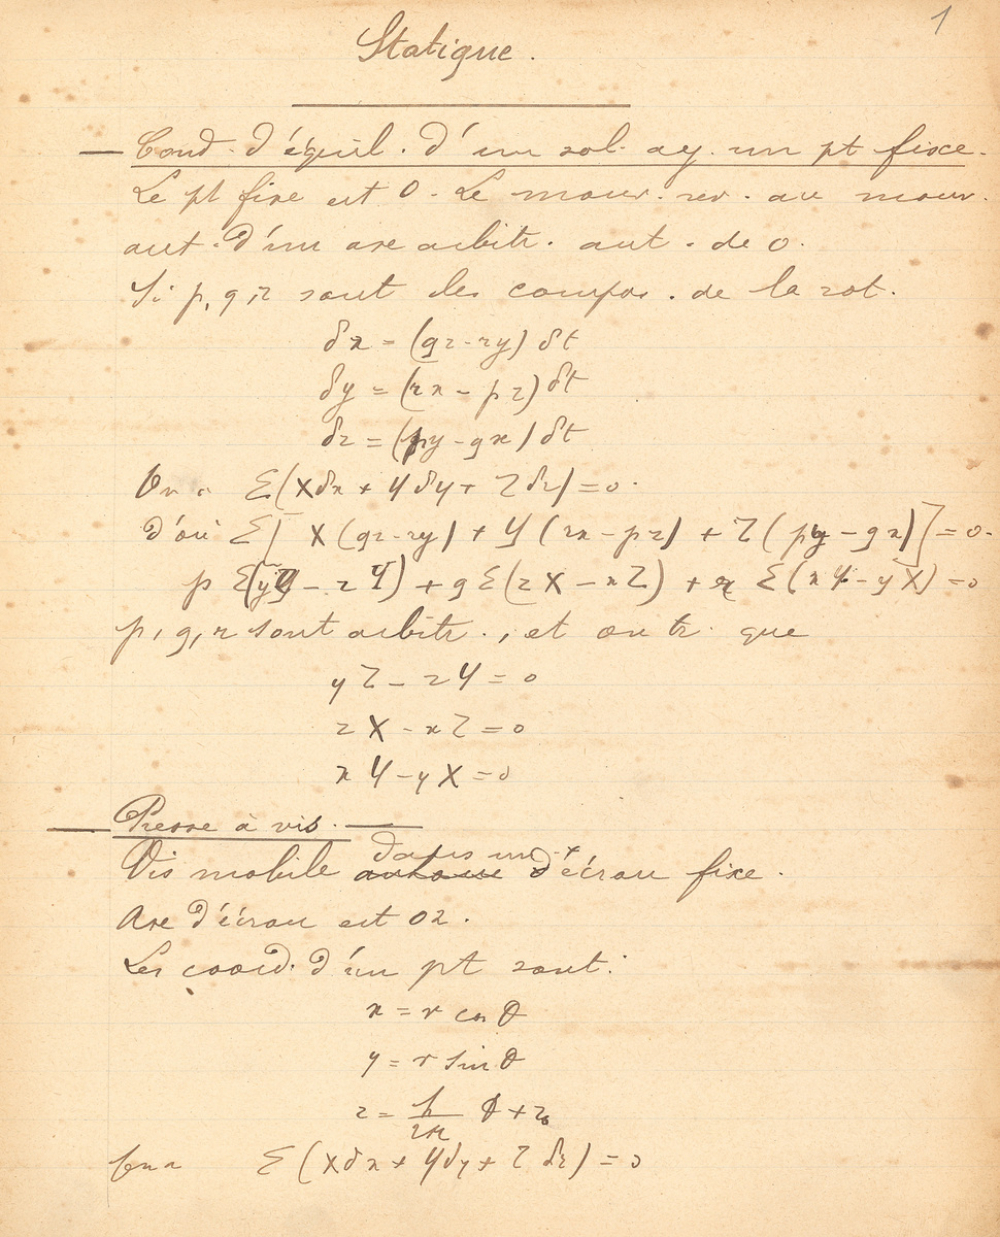 1
Statique.
— Cond. d'équil. d'un sol. ay. un pt fixe.
Le pt fixe est O. Le mouv. rev. au mouv.
aut. d'un axe arbitr. aut. de O.
Si p, q, r sont les compos. de la rot.
δx = (qz - ry) δt
δy = (rx - pz) δt
δz = (py - qx) δt
On a Σ(Xδx + Yδy + Zδz) = 0.
d'où Σ[X(qz - ry) + Y(rx - pz) + Z(py - qx)] = 0.
p Σ(yZ - zY) + q Σ(zX - xZ) + r Σ(xY - yX) = 0
p, q, r sont arbitr., et on tr. que
yZ - zY = 0
zX - xZ = 0
xY - yX = 0
— Presse à vis. —
dans un
Vis mobile d'écrou fixe.
Axe d'écrou est Oz.
Les coord. d'un pt sont:
x = r cos θ
y = r sin θ
z = h/2π θ + z₀
On a Σ(Xδx + Yδy + Zδz) = 0